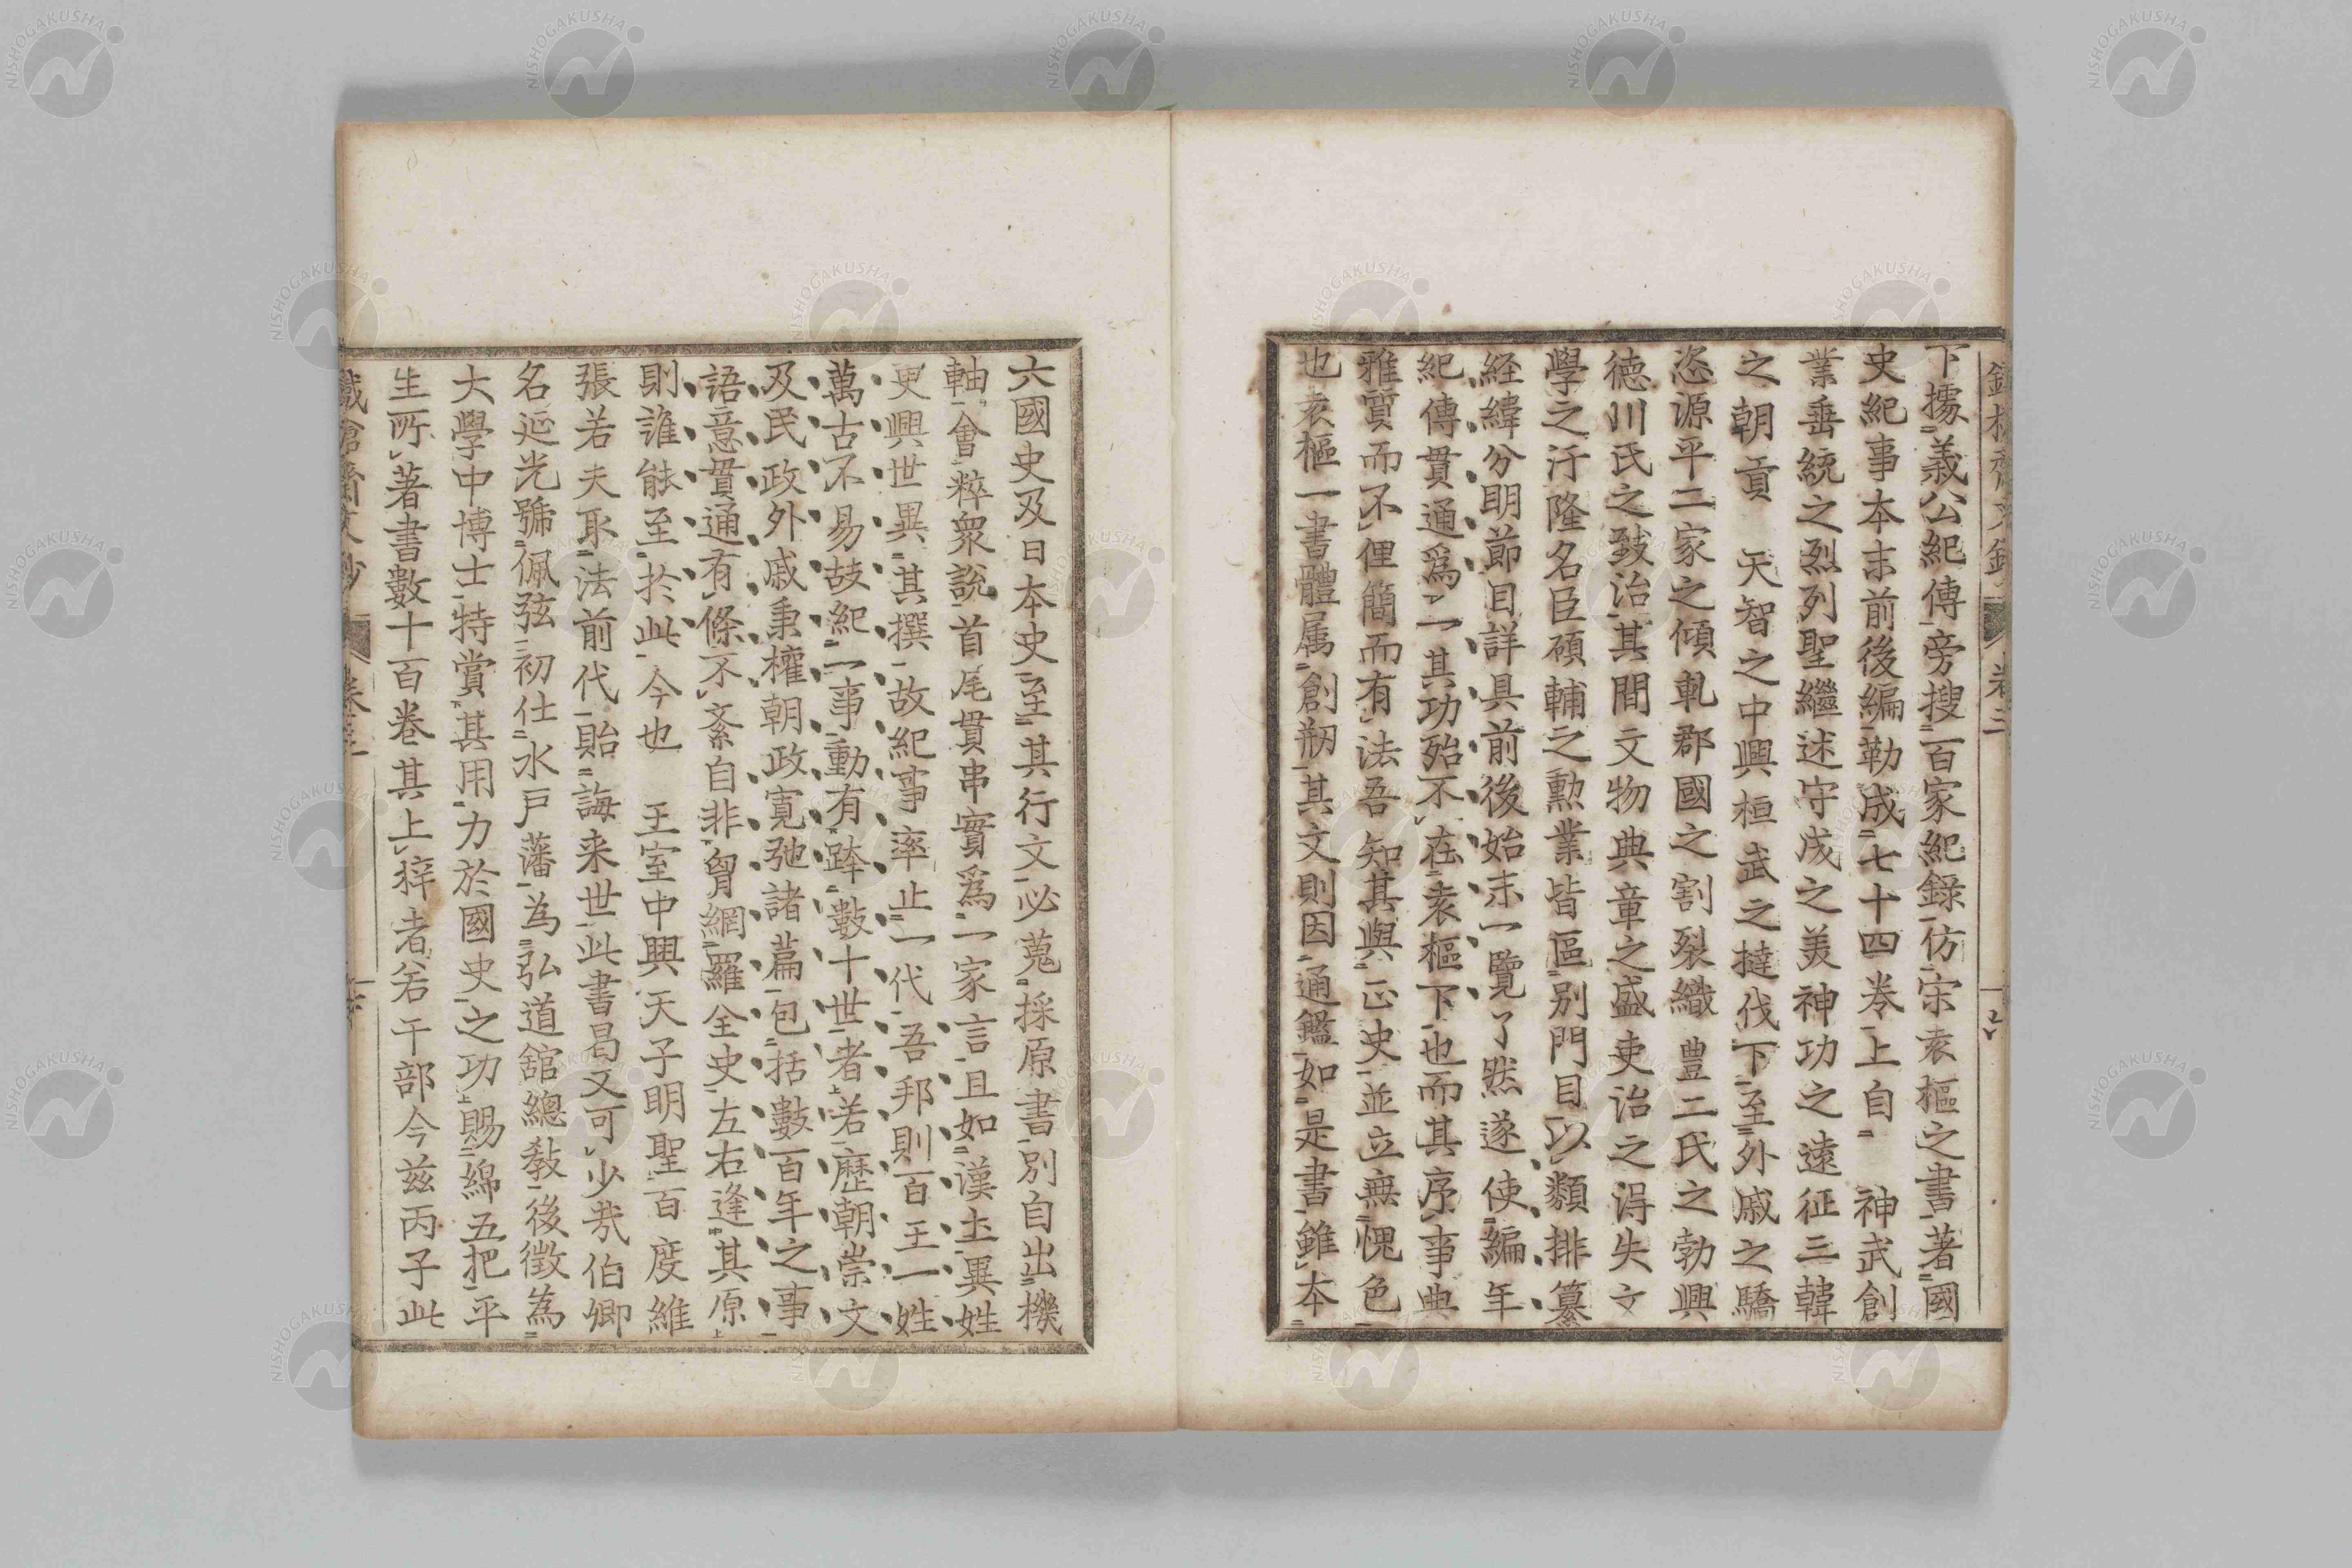 下據義公紀傳旁搜百家紀錄仿宗袁樞之書著國
史紀事本末前後編勒成七十四卷上自　神武創
業垂統之烈列聖繼述守成之美神功之遠征三韓
之朝貢　天智之中興桓武之撻伐下至外戚之驕
恣源平二家之傾軋郡國之割裂織豊二氏之勃興
徳川氏之致治其間文物典章之盛吏治之得失文
學之汙隆名臣碩輔之勲業皆區別門目以類排纂
経緯分明節目詳具前後始末一覽了然遂使編年
紀傳貫通爲一其功殆不在袁樞下也而其序事典
雅質而不俚簡而有法吾知其與正史並立無愧色
也袁樞一書體属創剏其文則因通鑑如是書雖本
六國史及日本史至其行文必蒐採原書別自出機
軸會粹衆說首尾貫串實爲一家言且如漢土異姓
更興世異其撰故紀事率止一代吾邦則百王一姓
萬古不易故紀一事動有跨數十世者若歷朝崇文
及民政外戚秉權朝政寛弛諸篇包括數百年之事
語意貫通有條不紊自非胷網羅全史左右逢其原
則誰能至於此今也　王室中興天子明聖百度維
張若夫取法前代貽誨来世此書曷又可少哉伯卿
名延光號佩弦初仕水戸藩為弘道舘總敎後徴為
大學中博士特賞其用力於國史之功賜綿五把平
生所著書數十百卷其上梓者若干部今茲丙子此